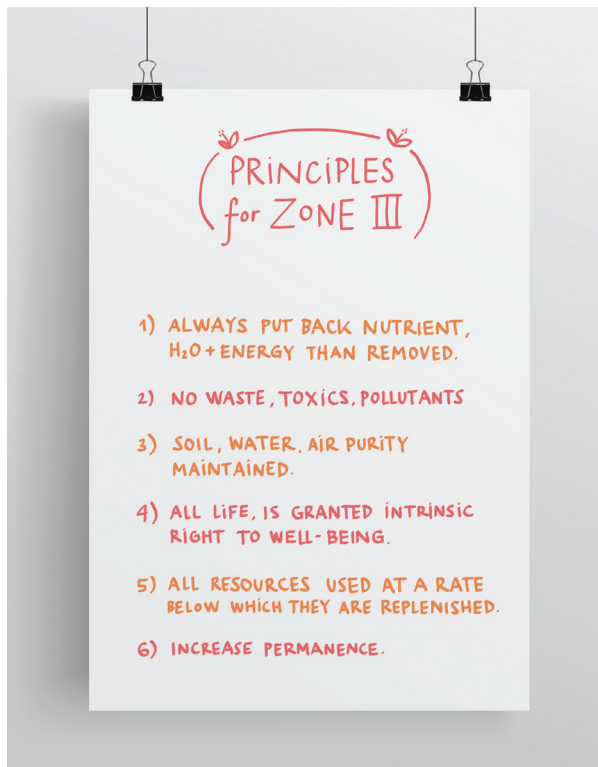 PRiNCiPLES
for ZONE III
1) ALWAYS PUT BACK NUTRIENT,
H₂O + ENERGY THAN REMOVED.
2) NO WASTE, TOXiCS, POLLUTANTS
3) SOiL, WATER, AiR PURiTY
MAiNTAiNED.
4) ALL LiFE, iS GRANTED iNTRiNSiC
RiGHT TO WELL-BEiNG.
5) ALL RESOURCES USED AT A RATE
BELOW WHiCH THEY ARE REPLENiSHED.
6) INCREASE PERMANENCE.